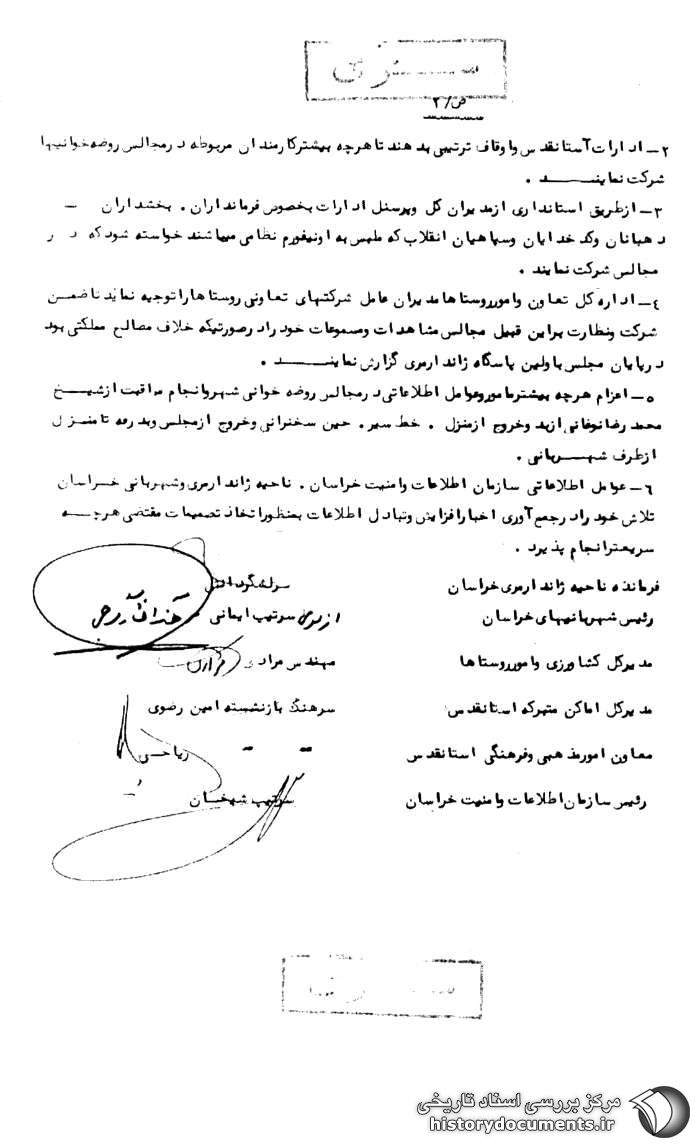 سری
ص/۲
۲ـ ادارات آستانقدس و اوقاف ترتیبی بدهند تا هرچه بیشتر کارمندان مربوطه در مجالس روضه خوانیها
شرکت نمایند .
۳ـ ازطریق استانداری از مدیران کل و پرسنل ادارات بخصوص فرمانداران . بخشداران ـ
دهبانان وکدخدایان وسپاهیان انقلاب که ملبس به اونیفورم نظامی میباشند خواسته شود که در
مجالس شرکت نمایند .
٤ـ اداره کل تعاون و امور روستاها مدیران عامل شرکتهای تعاونی روستاها را توجیه نماید تا ضمن
شرکت ونظارت براین قبیل مجالس مشاهدات ومسموعات خود را در صورتیکه خلاف مصالح مملکتی بود
در پایان مجلس با ولین پاسگاه ژاندارمری گزارش نمایند .
٥ـ اعزام هرچه بیشتر مامور وعوامل اطلاعاتی در مجالس روضه خوانی شهر وانجام مراقبت از شیخ
محمد رضا نوغانی از بد وخروج از منزل . خط سیر . حین سخنرانی وخروج از مجلس وبدرقه تا منزل
از طرف شهربانی .
٦ـ عوامل اطلاعاتی سازمان اطلاعات وامنیت خراسان . ناحیه ژاندارمری وشهربانی خراسان
تلاش خود را در جمع آوری اخبار افزایش وتبادل اطلاعات بمنظور اتخاذ تصمیمات مقتضی هرچه
سریعتر انجام پذیرد .
فرمانده ناحیه ژاندارمری خراسان سرلشگر
رئیس شهربانیهای خراسان از طرف سرتیپ ایمانی
مدیرکل کشاورزی وامور روستاها مهندس مرادی
مدیرکل اماکن متبرکه استانقدس سرهنگ بازنشسته امین رضوی
معاون امور مذهبی وفرهنگی استانقدس ریاحی
رئیس سازمان اطلاعات وامنیت خراسان سرتیپ شیخان
سری
مرکز بررسی اسناد تاریخی
historydocuments.ir